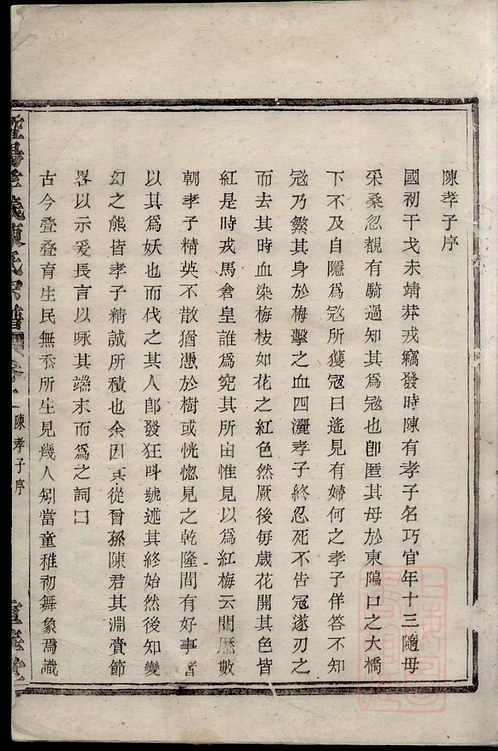 陳孝子序
國初干戈未靖莽戎竊發時陳有孝子名巧官年十三隨母
采桑忽覩有騎過知其為寇也卽匿其母於東隝口之大橋
下不及自隱為寇所獲寇曰遙見有婦何之孝子佯答不知
寇乃繁其身於梅擊之血四灑孝子終忍死不告寇遂刃之
而去其時血染梅枝如花之紅色然厥後每歲花開其色皆
紅是時戎馬倉皇誰為究其所由惟見以為紅梅云閱歷數
朝孝子精英不散猶憑於樹或恍惚見之乾隆間有好事者
以其為妖也而伐之其人卽發狂呌號述其終始然後知變
幻之態皆孝子精誠所積也余因其從晉孫陳君其淵賫節
畧以示爰長言以咏其端末而為之詞曰
古今叠叠育生民無忝所生見幾人矧當童稚初舞象焉識
陳氏宗譜
卷一
陳孝子序